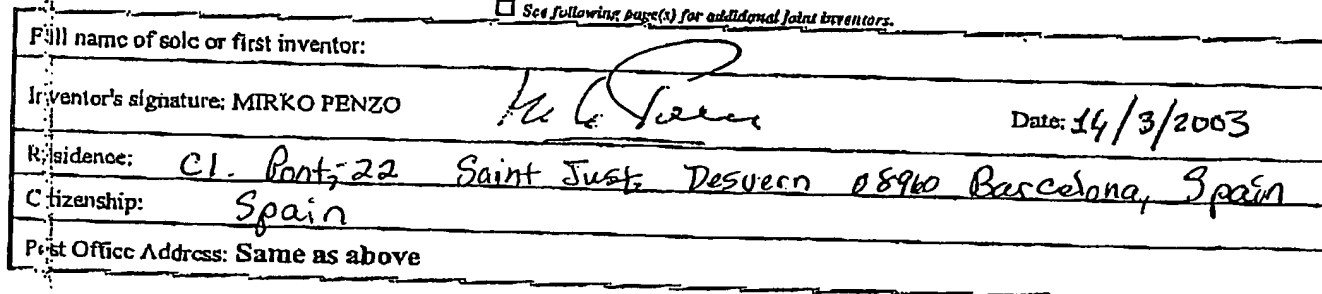 ☐ See following page(s) for additional joint inventors.
Full name of sole or first inventor:
Inventor's signature: MIRKO PENZO Date: 14/3/2003
Residence: Cl. Pont, 22 Saint Just, Desvern 08960 Barcelona, Spain
Citizenship: Spain
Post Office Address: Same as above